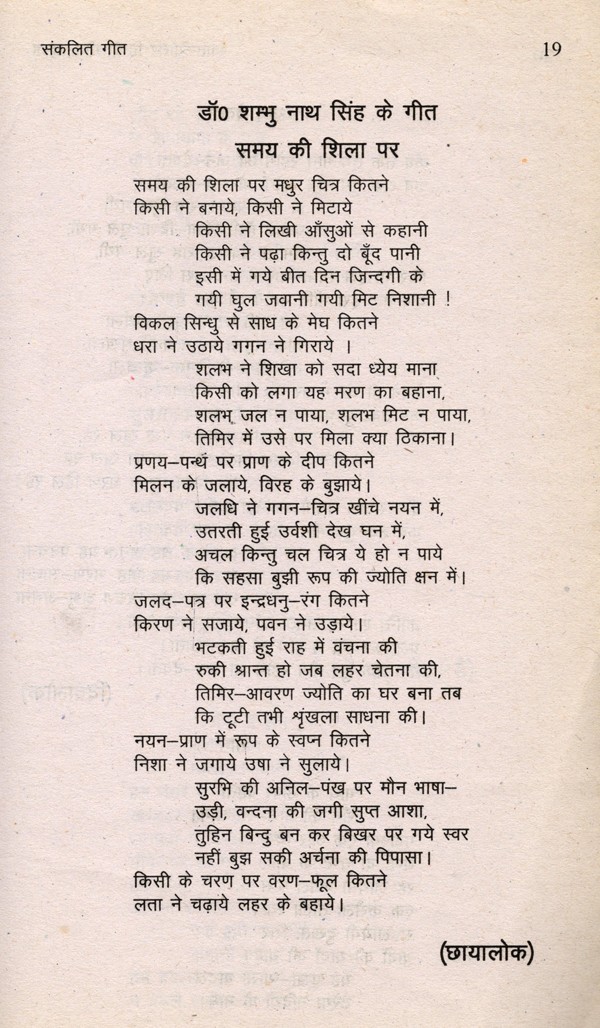 संकलित गीत
19
डॉ0 शम्भु नाथ सिंह के गीत
समय की शिला पर
समय की शिला पर मधुर चित्र कितने
किसी ने बनाये, किसी ने मिटाये
किसी ने लिखी आँसुओं से कहानी
किसी ने पढ़ा किन्तु दो बूँद पानी
इसी में गये बीत दिन जिन्दगी के
गयी घुल जवानी गयी मिट निशानी !
विकल सिन्धु से साध के मेघ कितने
धरा ने उठाये गगन ने गिराये ।
शलभ ने शिखा को सदा ध्येय माना
किसी को लगा यह मरण का बहाना,
शलभ् जल न पाया, शलभ मिट न पाया,
तिमिर में उसे पर मिला क्या ठिकाना।
प्रणय–पन्थ पर प्राण के दीप कितने
मिलन के जलाये, विरह के बुझाये।
जलधि ने गगन–चित्र खींचे नयन में,
उतरती हुई उर्वशी देख घन में,
अचल किन्तु चल चित्र ये हो न पाये
कि सहसा बुझी रूप की ज्योति क्षन में।
जलद–पत्र पर इन्द्रधनु–रंग कितने
किरण ने सजाये, पवन ने उड़ाये।
भटकती हुई राह में वंचना की
रुकी श्रान्त हो जब लहर चेतना की,
तिमिर–आवरण ज्योति का घर बना तब
कि टूटी तभी शृंखला साधना की।
नयन–प्राण में रूप के स्वप्न कितने
निशा ने जगाये उषा ने सुलाये।
सुरभि की अनिल–पंख पर मौन भाषा–
उड़ी, वन्दना की जगी सुप्त आशा,
तुहिन बिन्दु बन कर बिखर पर गये स्वर
नहीं बुझ सकी अर्चना की पिपासा।
किसी के चरण पर वरण–फूल कितने
लता ने चढ़ाये लहर के बहाये।
(छायालोक)